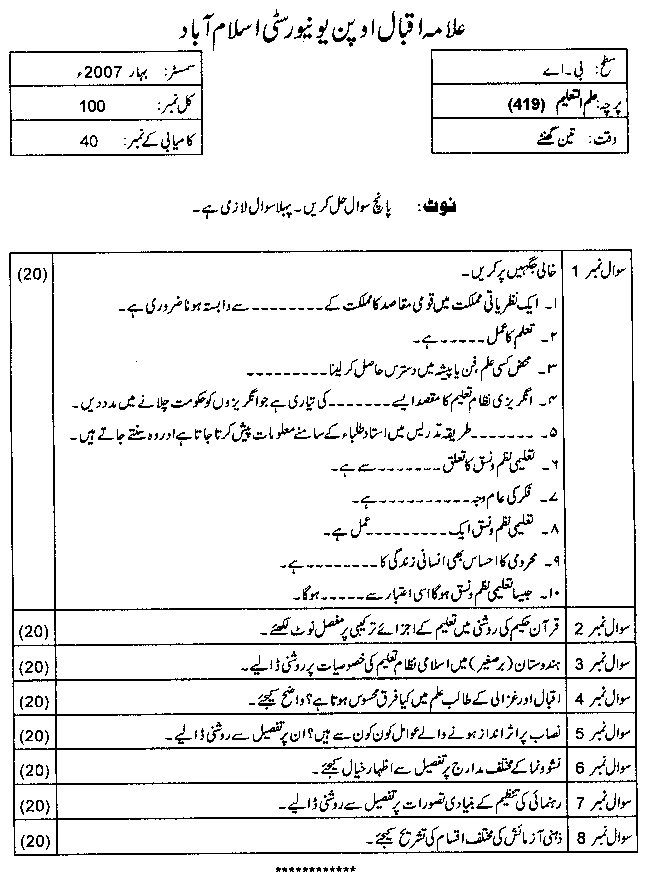 علامہ اقبال اوپن یونیورسٹی اسلام آباد
سطح: بی۔اے
پرچہ: علم التعلیم (419)
وقت: تین گھنٹے
سمسٹر: بہار 2007ء
کل نمبر: 100
کامیابی کے نمبر: 40
نوٹ: پانچ سوال حل کریں۔ پہلا سوال لازمی ہے۔
سوال نمبر 1 خالی جگہیں پر کریں۔ (20)
۱۔ ایک نظریاتی مملکت میں قومی مقاصد کا مملکت کے --------- سے وابستہ ہونا ضروری ہے۔
۲۔ تعلم کا عمل ----- ہے۔
۳۔ محض کسی علم، فن یا پیشہ میں دسترس حاصل کر لینا ---------
۴۔ انگریزی نظام تعلیم کا مقصد ایسے ------- کی تیاری ہے جو انگریزوں کو حکومت چلانے میں مدد دیں۔
۵۔ ------- طریقہ تدریس میں استاد طلباء کے سامنے معلومات پیش کرتا جاتا ہے اور وہ سنتے جاتے ہیں۔
۶۔ تعلیمی نظم و نسق کا تعلق -------- سے ہے۔
۷۔ فکر کی عام وجہ ----------- ہے۔
۸۔ تعلیمی نظم و نسق ایک --------- عمل ہے۔
۹۔ محرومی کا احساس بھی انسانی زندگی کا --------- ہے۔
۱۰۔ جیسا تعلیمی نظم و نسق ہوگا اسی اعتبار سے ----- ہوگا۔
سوال نمبر 2 قرآن حکیم کی روشنی میں تعلیم کے اجزائے ترکیبی پر مفصل نوٹ لکھئے۔ (20)
سوال نمبر 3 ہندوستان (برصغیر) میں اسلامی نظام تعلیم کی خصوصیات پر روشنی ڈالیے۔ (20)
سوال نمبر 4 اقبال اور غزالی کے طالب علم میں کیا فرق محسوس ہوتا ہے؟ واضح کیجئے۔ (20)
سوال نمبر 5 نصاب پر اثر انداز ہونے والے عوامل کون کون سے ہیں؟ ان پر تفصیل سے روشنی ڈالیے۔ (20)
سوال نمبر 6 نشوونما کے مختلف مدارج پر تفصیل سے اظہار خیال کیجئے۔ (20)
سوال نمبر 7 رہنمائی کی تنظیم کے بنیادی تصورات پر تفصیل سے روشنی ڈالیے۔ (20)
سوال نمبر 8 ذہنی آزمائش کی مختلف اقسام کی تشریح کیجئے۔ (20)
************